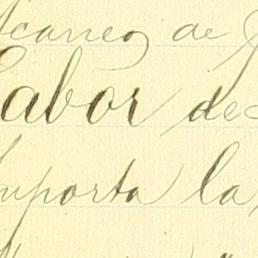 acarreo de
Labor de
importa la